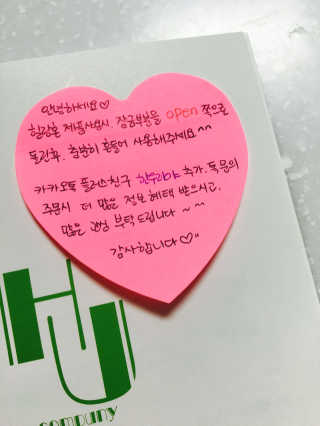 안녕하세요♡
제품사용시 잠금부분을 open 쪽으로
돌린후, 충분히 흔들어 사용해주세요^^
카카오톡 플러스친구 추가, 톡문의
주문시 더 많은 정보 혜택 받으시고,
많은 관심 부탁드립니다 ~ ^^
감사합니다♡"
HU
company